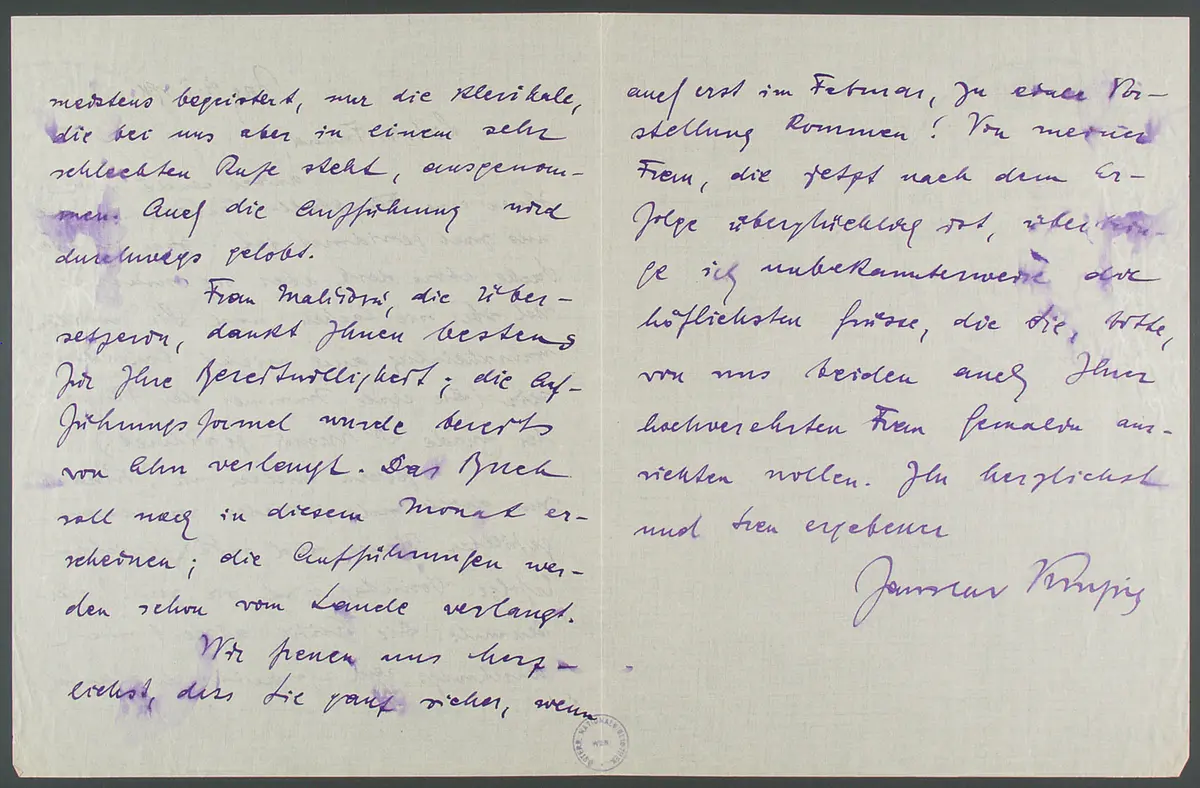 meistens begeistert, nur die klerikale,
die bei uns aber in einem sehr
schlechten Rufe steht, ausgenom-
men. Auch die Aufführung wird
durchwegs gelobt.
Frau Malířová, die Über-
setzerin, dankt Ihnen bestens
für Ihre Bereitwilligkeit; die Auf-
führungsformel wurde bereits
von Ihr verlangt. Das Buch
soll noch in diesem Monat er-
scheinen; die Aufführungen wer-
den schon vom Lande verlangt.
Wir freuen uns herz-
lichst, dass Sie ganz sicher, wenn
auch erst im Februar, zu einer Vor-
stellung kommen! Von meiner
Frau, die jetzt nach dem Er-
folge überglücklich ist, überbrin-
ge ich unbekannterweise die
höflichsten Grüsse, die Sie, bitte,
von uns beiden auch Ihrer
hochverehrten Frau Gemalin aus-
richten wollen. Ihr herzlichst
und treu ergebener
Jaroslav